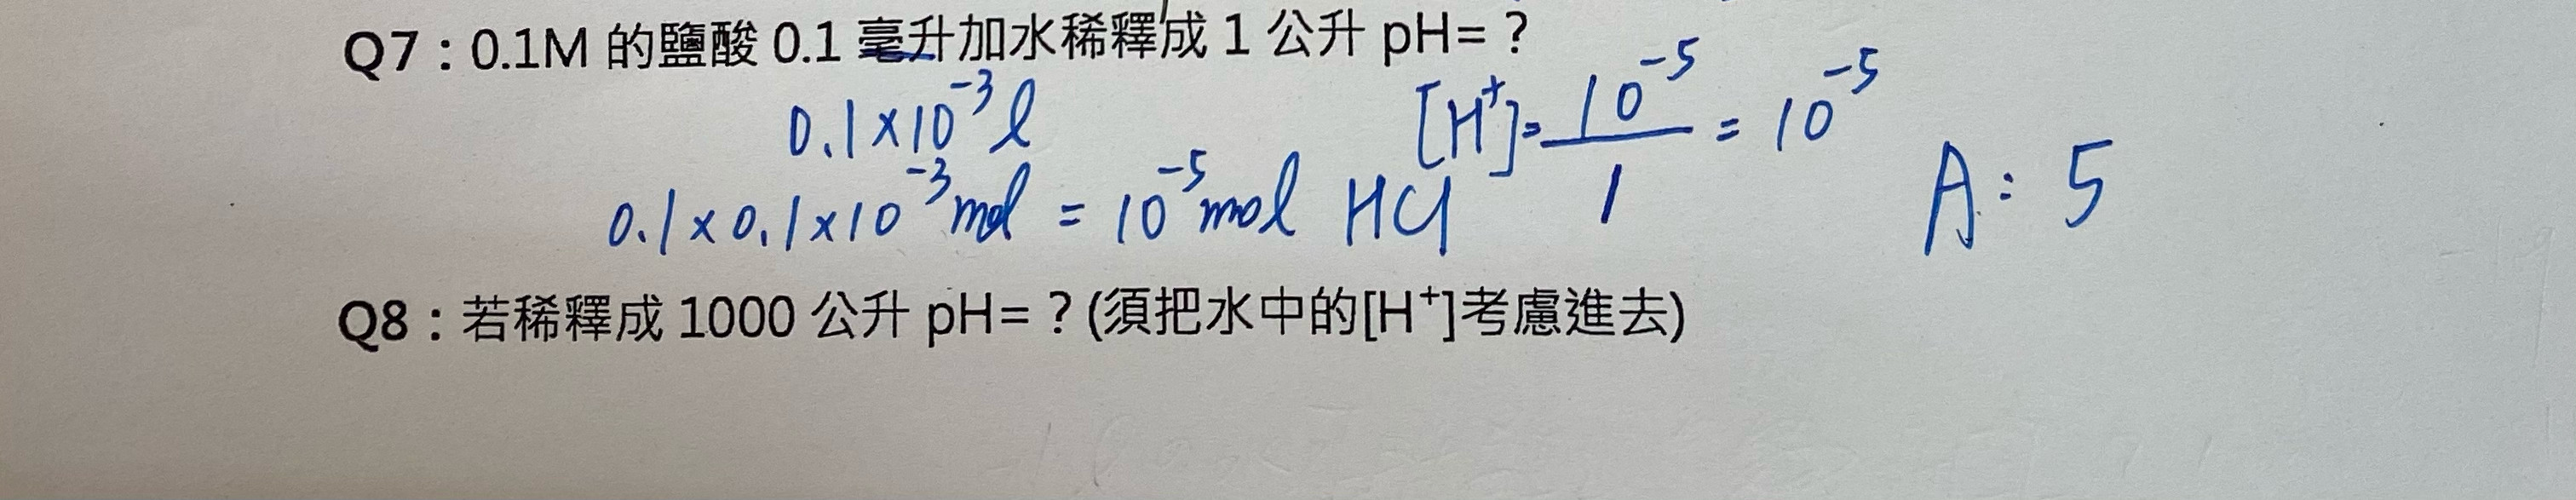 Q7：0.1M 的鹽酸 0.1 毫升加水稀釋成 1 公升 pH=？
0.1×10⁻³ l
[H⁺]=10⁻⁵/1 = 10⁻⁵
0.1×0.1×10⁻³ mol = 10⁻⁵ mol HCl
A: 5
Q8：若稀釋成 1000 公升 pH=？(須把水中的[H⁺]考慮進去)